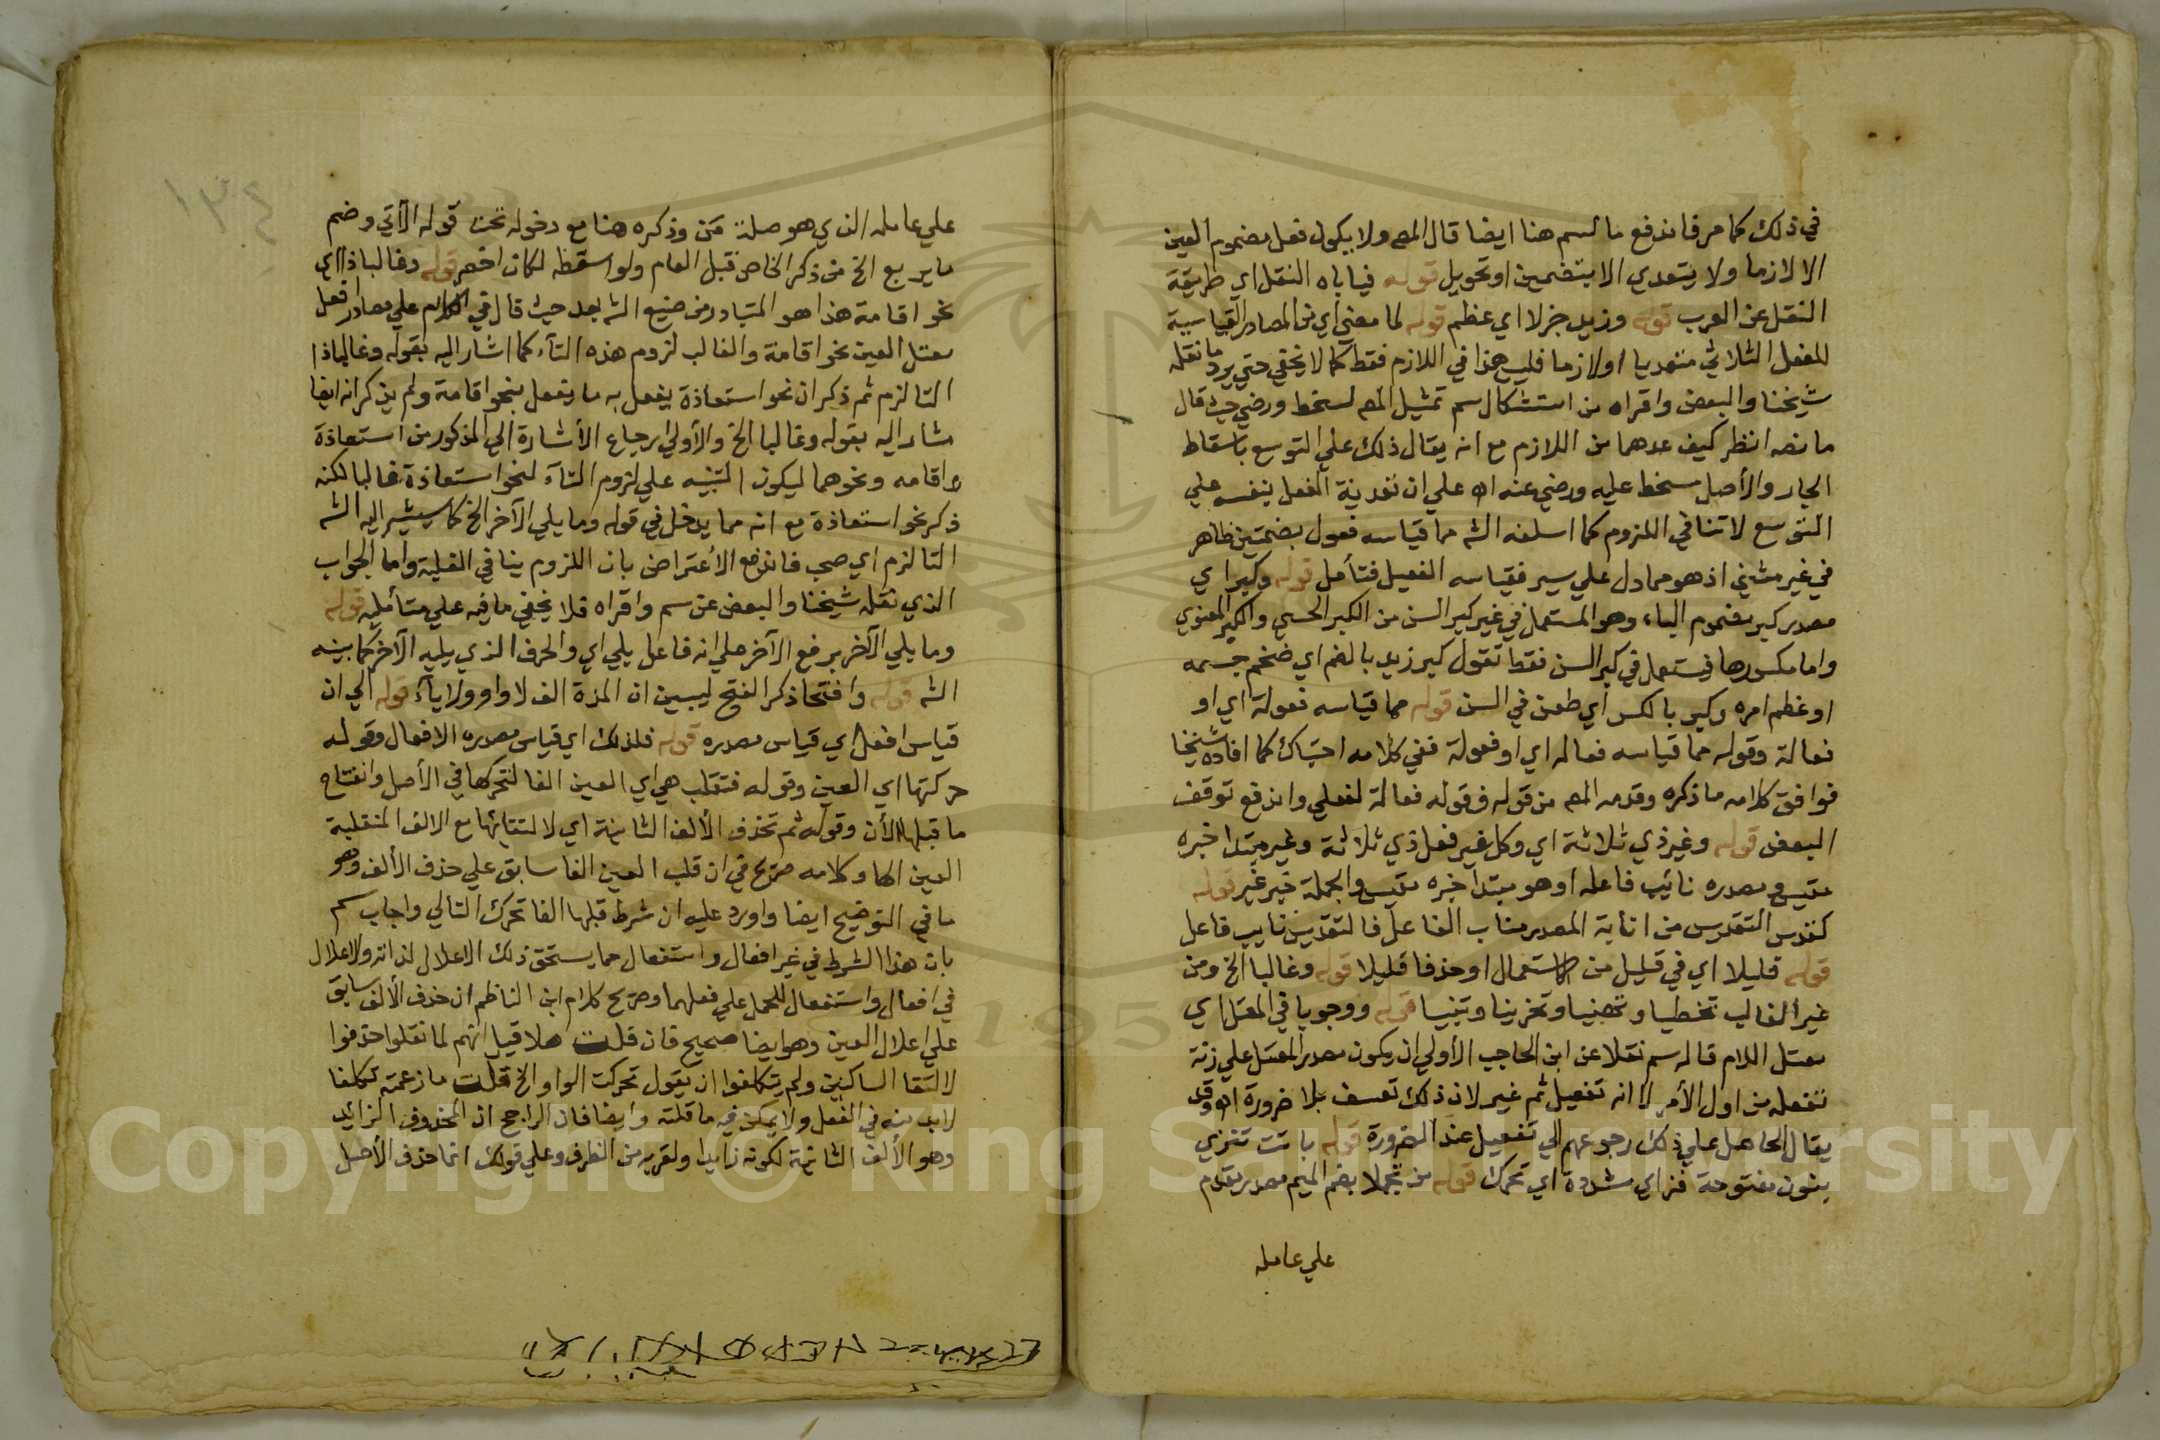 في ذلك كما مر فاندفع ما لسم هنا ايضا قال المص ولا يكون فعل مضموم العين
الا لازما ولا يتعدي الا بتضمين او تحويل قوله فيا باه النقل اي طريقة
النقل عن العرب قوله وزيد جزلا اي عظم قوله لما مضي اي من المصادر القياسية
للفعل الثلاثي متعديا او لازما فليس هذا في اللازم فقط كما لا يخفي حتي يرد ما نقله
شيخنا والبعض واقراه من استشكال سم تمثيل المص لسخط ورضي حيث قال
ما نصه انظر كيف عدهما من اللازم مع انه يقال ذلك علي التوسع باسقاط
الجار والأصل سخط عليه ورضي عنه اه علي ان تعدية الفعل بنفسه علي
التوسع لا تنافي اللزوم كما اسلفه الشه مما قياسه فعول بضمتين ظاهر
في غير مشي اذ هو مما دل علي سير فقياسه الفعيل فتأمل قوله وكبر اي
مصدر كبر مضموم الباء وهو المستعمل في غير كبر السن من الكبر الحسي والكبر المعنوي
واما مكسورها فيستعمل في كبر السن فقط تقول كبر زيد بالضم اي ضخم جسمه
او عظم امره وكبر بالكسر اي طعن في السن قوله مما قياسه فعولة اي او
فعالة وقوله مما قياسه فعاله اي او فعولة ففي كلامه احتباك كما افاده شيخنا
فوافق كلامه ما ذكره وقدمه المص من قوله فعولة فعالة لفعلي واندفع توقف
البعض قوله وغير ذي ثلاثة اي وكل غير فعل ذي ثلاثة وغير مبتدا خبره
مقيس ومصدره نائب فاعله او هو مبتدا خبره مقيس والجملة خبر غير قوله
كقدس التقديس من انابة المصدر مناب الفاعل فالتقديس نايب فاعل
قوله قليلا اي في قليل من الاستعمال او حذفا قليلا قوله وغالبا الخ ومن
غير الغالب تخطيا وتهنيا وتجزيا وتنبيا قوله ووجوبا في المعتل اي
معتل اللام قاله سم نقلا عن ابن الحاجب الأولي ان يكون مصدر المعتل علي زنة
تفعله من اول الأمر لا انه تفعيل ثم غير لان ذلك تعسف بلا ضرورة اه وقد
يقال الحامل علي ذلك رجوعهم الي تفعيل عند الضرورة قوله باتت تنزي
بنون مفتوحة فزاي مشددة اي تحرك قوله من تجملا بضم الميم مصدر مقدم
علي عامله
علي عامله الذي هو صلة من وذكره هنا مع دخوله تحت قوله الآتي وضم
ما يربع الخ من ذكر الخاص قبل العام ولو اسقطه لكان اخصر قوله وغالبا ذا اي
نحو اقامة هذا هو المتبادر من صنيع الشه بعد حيث قال في الكلام علي مصادر افعل
معتل العين نحو اقامة والغالب لزوم هذه التآء كما اشار اليه بقوله وغالبا ذا
التا لزم ثم ذكر ان نحو استعاذة يفعل به ما يفعل بنحو اقامة ولم يذكر انه ايضا
مشار اليه بقوله وغالبا الخ والأولي ارجاع الأشارة الي المذكور من استعاذة
واقامه ونحوهما ليكون التنبيه علي لزوم التآء لنحو استعاذة غالبا لكنه
ذكر نحو استعاذة مع انه مما يدخل في قوله وما يلي الآخر الخ كما سيشير اليه الشه
التا لزم اي صحب فاندفع الأعتراض بان اللزوم ينافي الغلبة واما الجواب
الذي نقله شيخنا والبعض عن سم واقراه فلا يخفي ما فيه علي متأمليه قوله
وما يلي الآخر برفع الآخر علي انه فاعل يلي اي والحرف الذي يليه الآخر كما بينه
الشه قوله وافتحا ذكر الفتح ليبين ان المدة الف لا واو ولا ياء قوله الي ان
قياس افعل اي قياس مصدره قوله فلذلك اي قياس مصدره الافعال وقوله
حركتها اي العين وقوله فتقلب هي اي العين الفا لتحركها في الأصل وانفتاح
ما قبلها الأن وقوله ثم تحذف الألف الثانية اي لالتقائها مع الالف المنقلبة
العين الها وكلامه صريح في ان قلب العين الفا سابق علي حذف الألف وهو
ما في التوضيح ايضا واورد عليه ان شرط قبلها الفا تحرك التالي واجاب سم
بان هذا الشرط في غير افعال واستفعال مما يستحق ذلك الاعلال لذاته والاعلال
في افعال واستفعال للحمل علي فعلهما وصريح كلام ابن الناظم ان حذف الألف سابق
علي اعلال العين وهو ايضا صحيح فان قلت هلا قيل انهم لما نقلوا حذفوا
لالتقا الساكنين ولم يتكلفوا ان يقول تحركت الواو الخ قلت ما زعمته تكلفا
لابد منه في الفعل ولا يمكن فيه ما قلته وايضا فان الراجح ان المحذوف الزائد
وهو الألف الثانية لكونه زايدا ولقربه من الطرف وعلي قولك انما حذف الأصل
١٣٤
Copyright © King Saud University
1957